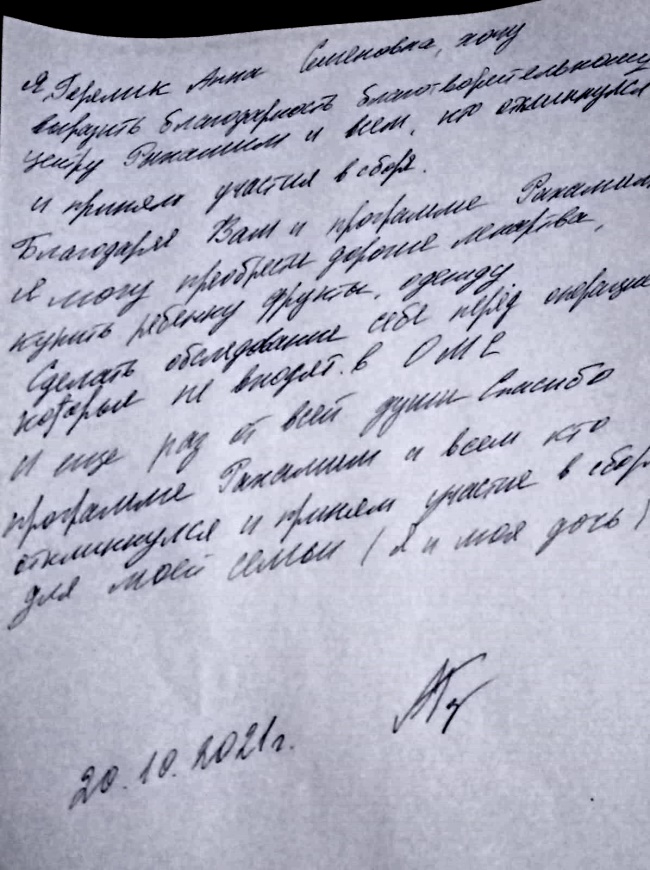 Я, Герелик Анна Семеновна, хочу
выразить благодарность благотворительному
центру Рахамим и всем, кто откликнулся
и принял участия в сборе.
Благодаря Вам и программе Рахамим
я могу преобрести дорогие лекарства,
купить ребенку фрукты, одежду
Сделать обследование себе перед операцие
которые не входят в ОМС
И еще раз от всей души Спасибо
программе Рахамим и всем кто
откликнулся и принял участие в сбор
для моей семьи (Я и моя дочь)
20.10.2021г.